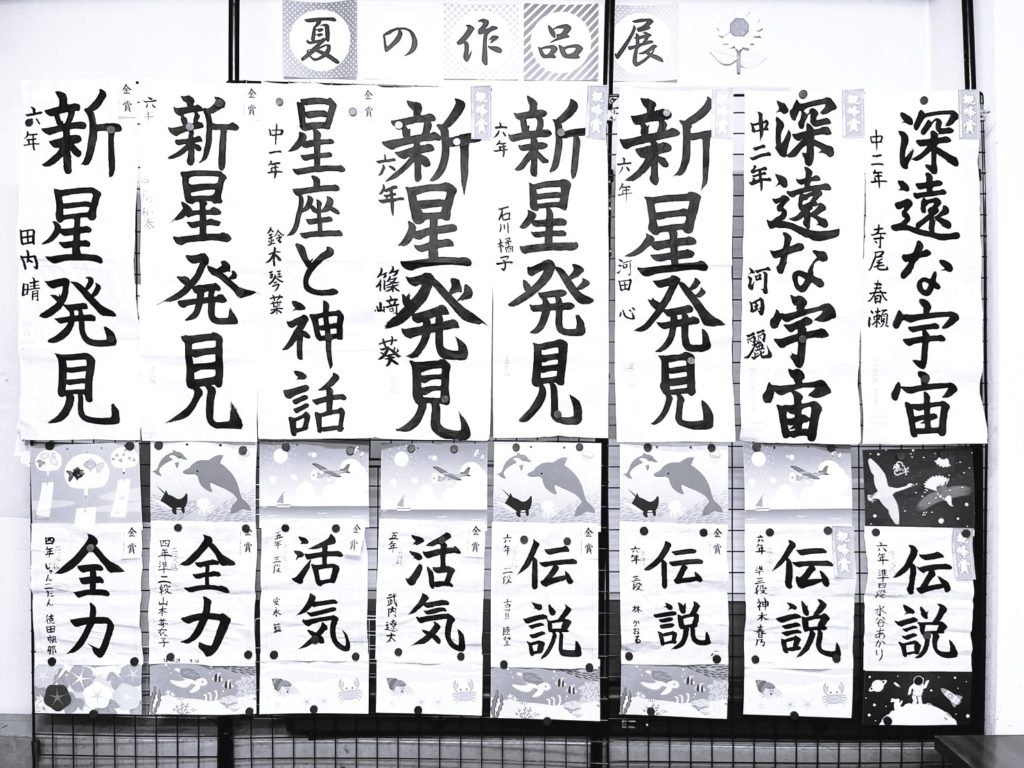 夏の作品展
深遠な宇宙
中二年 寺尾春瀬
深遠な宇宙
中二年 河田麗
新星発見
六年 河田心
新星発見
六年 石川橘子
新星発見
六年 篠﨑葵
金賞
星座と神話
中一年 鈴木琴葉
金賞
新星発見
六年
金賞
新星発見
六年 田内晴
伝説
六年 準四段 水谷あかり
伝説
六年 準三段 神木春乃
金賞
伝説
六年 三段 林かおる
金賞
伝説
六年 二段
金賞
活気
五年 武内遼太
金賞
活気
五年 三段 安永藍
金賞
全力
四年 準二段 山本
金賞
全力
四年